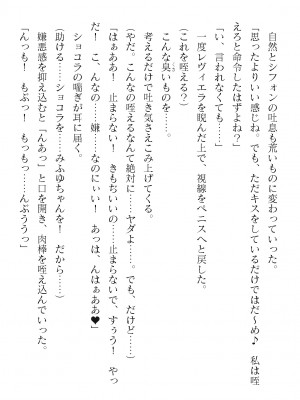 自然とシフォンの吐息も荒いものに変わっていった。
「思ったよりいい感じね。でも、ただキスをしているだけではだ～め♪　私は咥
えろと命令したはずよね？」
「い、言われなくても……」
一度レヴィエラを睨んだ上で、視線をペニスへと戻した。
（これを咥える？
こんな臭いものを……）
考えるだけで吐き気さえこみ上げてくる。
（やだ。こんなの咥えるなんて絶対に……ヤダよ……。でも、だけど……）
「はぁああ！　止まらない！　きもちいいの……止まらないで、すぅう！　やっ
こ、こんなの……嫌……なのにぃい！　あっは、んはぁああ♥」
ショコラの喘ぎが耳に届く。
（助ける……ショコラを……みふゆちゃんを！　だから……）
嫌悪感を抑え込むと「んあっ」と口を開き、肉棒を咥え込んでいった。
「んっも！　もぶっ！　もっもっ……んぶううっ」